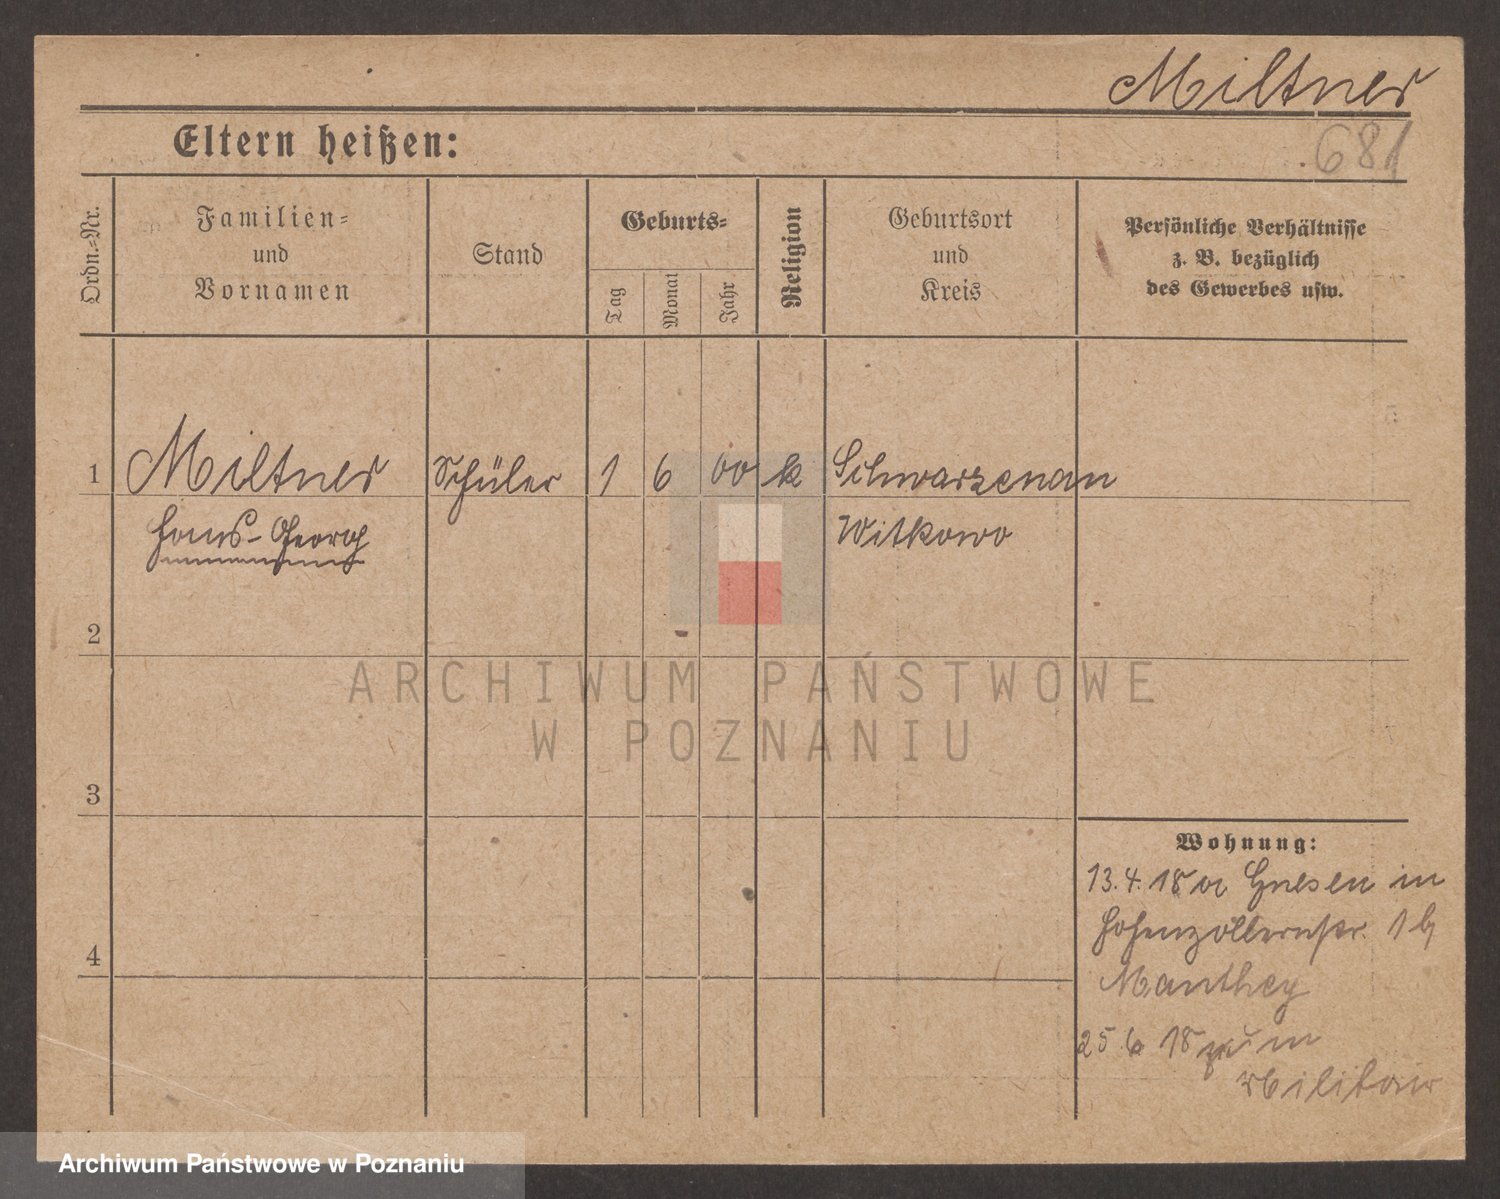 Miltner
681
Eltern heißen:
Ordn.=Nr.
Familien=
und
Vornamen
Stand
Geburts=
Tag
Monat
Jahr
Religion
Geburtsort
und
Kreis
Persönliche Verhältnisse
z. B. bezüglich
des Gewerbes usw.
1 Miltner Schüler 1 6 00 k Schwarzenau
Hans-Georg Witkowo
2
3
4
Wohnung:
13.4.18 Gnesen
Hohenzollernstr. 1
Manthey
25 6 18 zum
Militair
ARCHIWUM PAŃSTWOWE
W POZNANIU
Archiwum Państwowe w Poznaniu